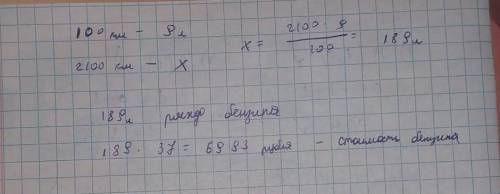 100 км – 9л
2100 км – х
х = 2100 · 9 / 100 = 189л
189л расход бензина
189 · 37 = 6993 рубля – стоимость бензина